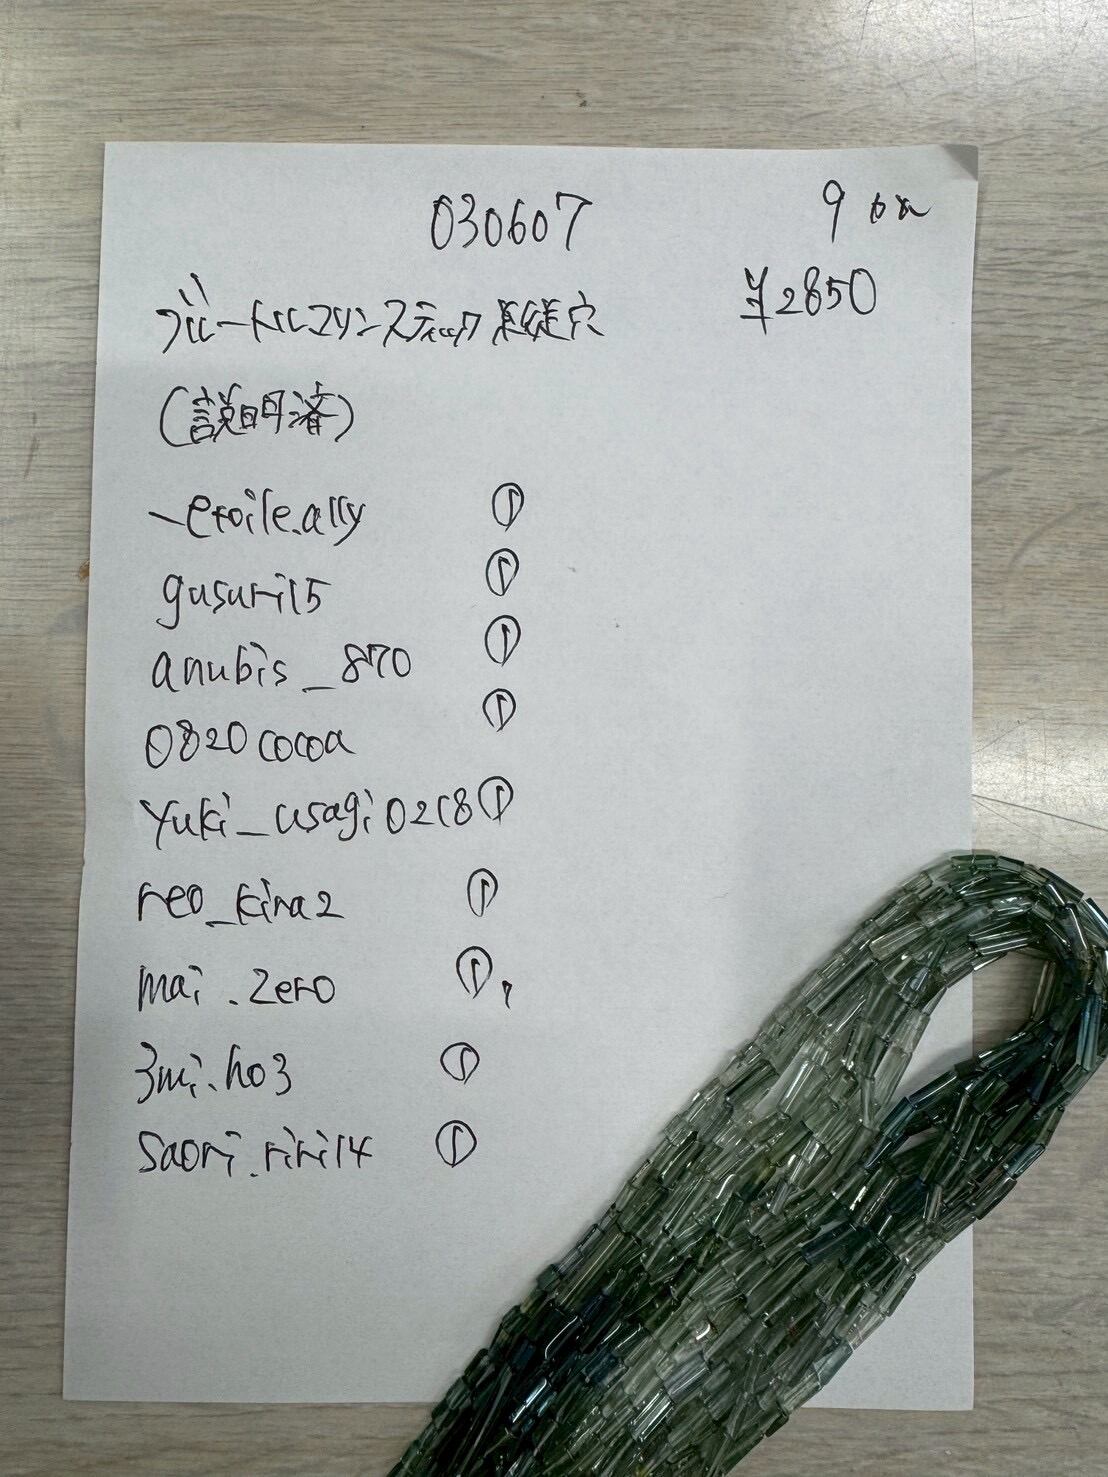 030607
9
¥2850
スティック 縦穴
(説明済)
_etoile.ally ①
gusuri15 ①
anubis_870 ①
0820cocoa ①
yuki_usagi0218 ①
reo_kira2 ①
mai.zero ①
3mi.ho3 ①
saori.riri14 ①